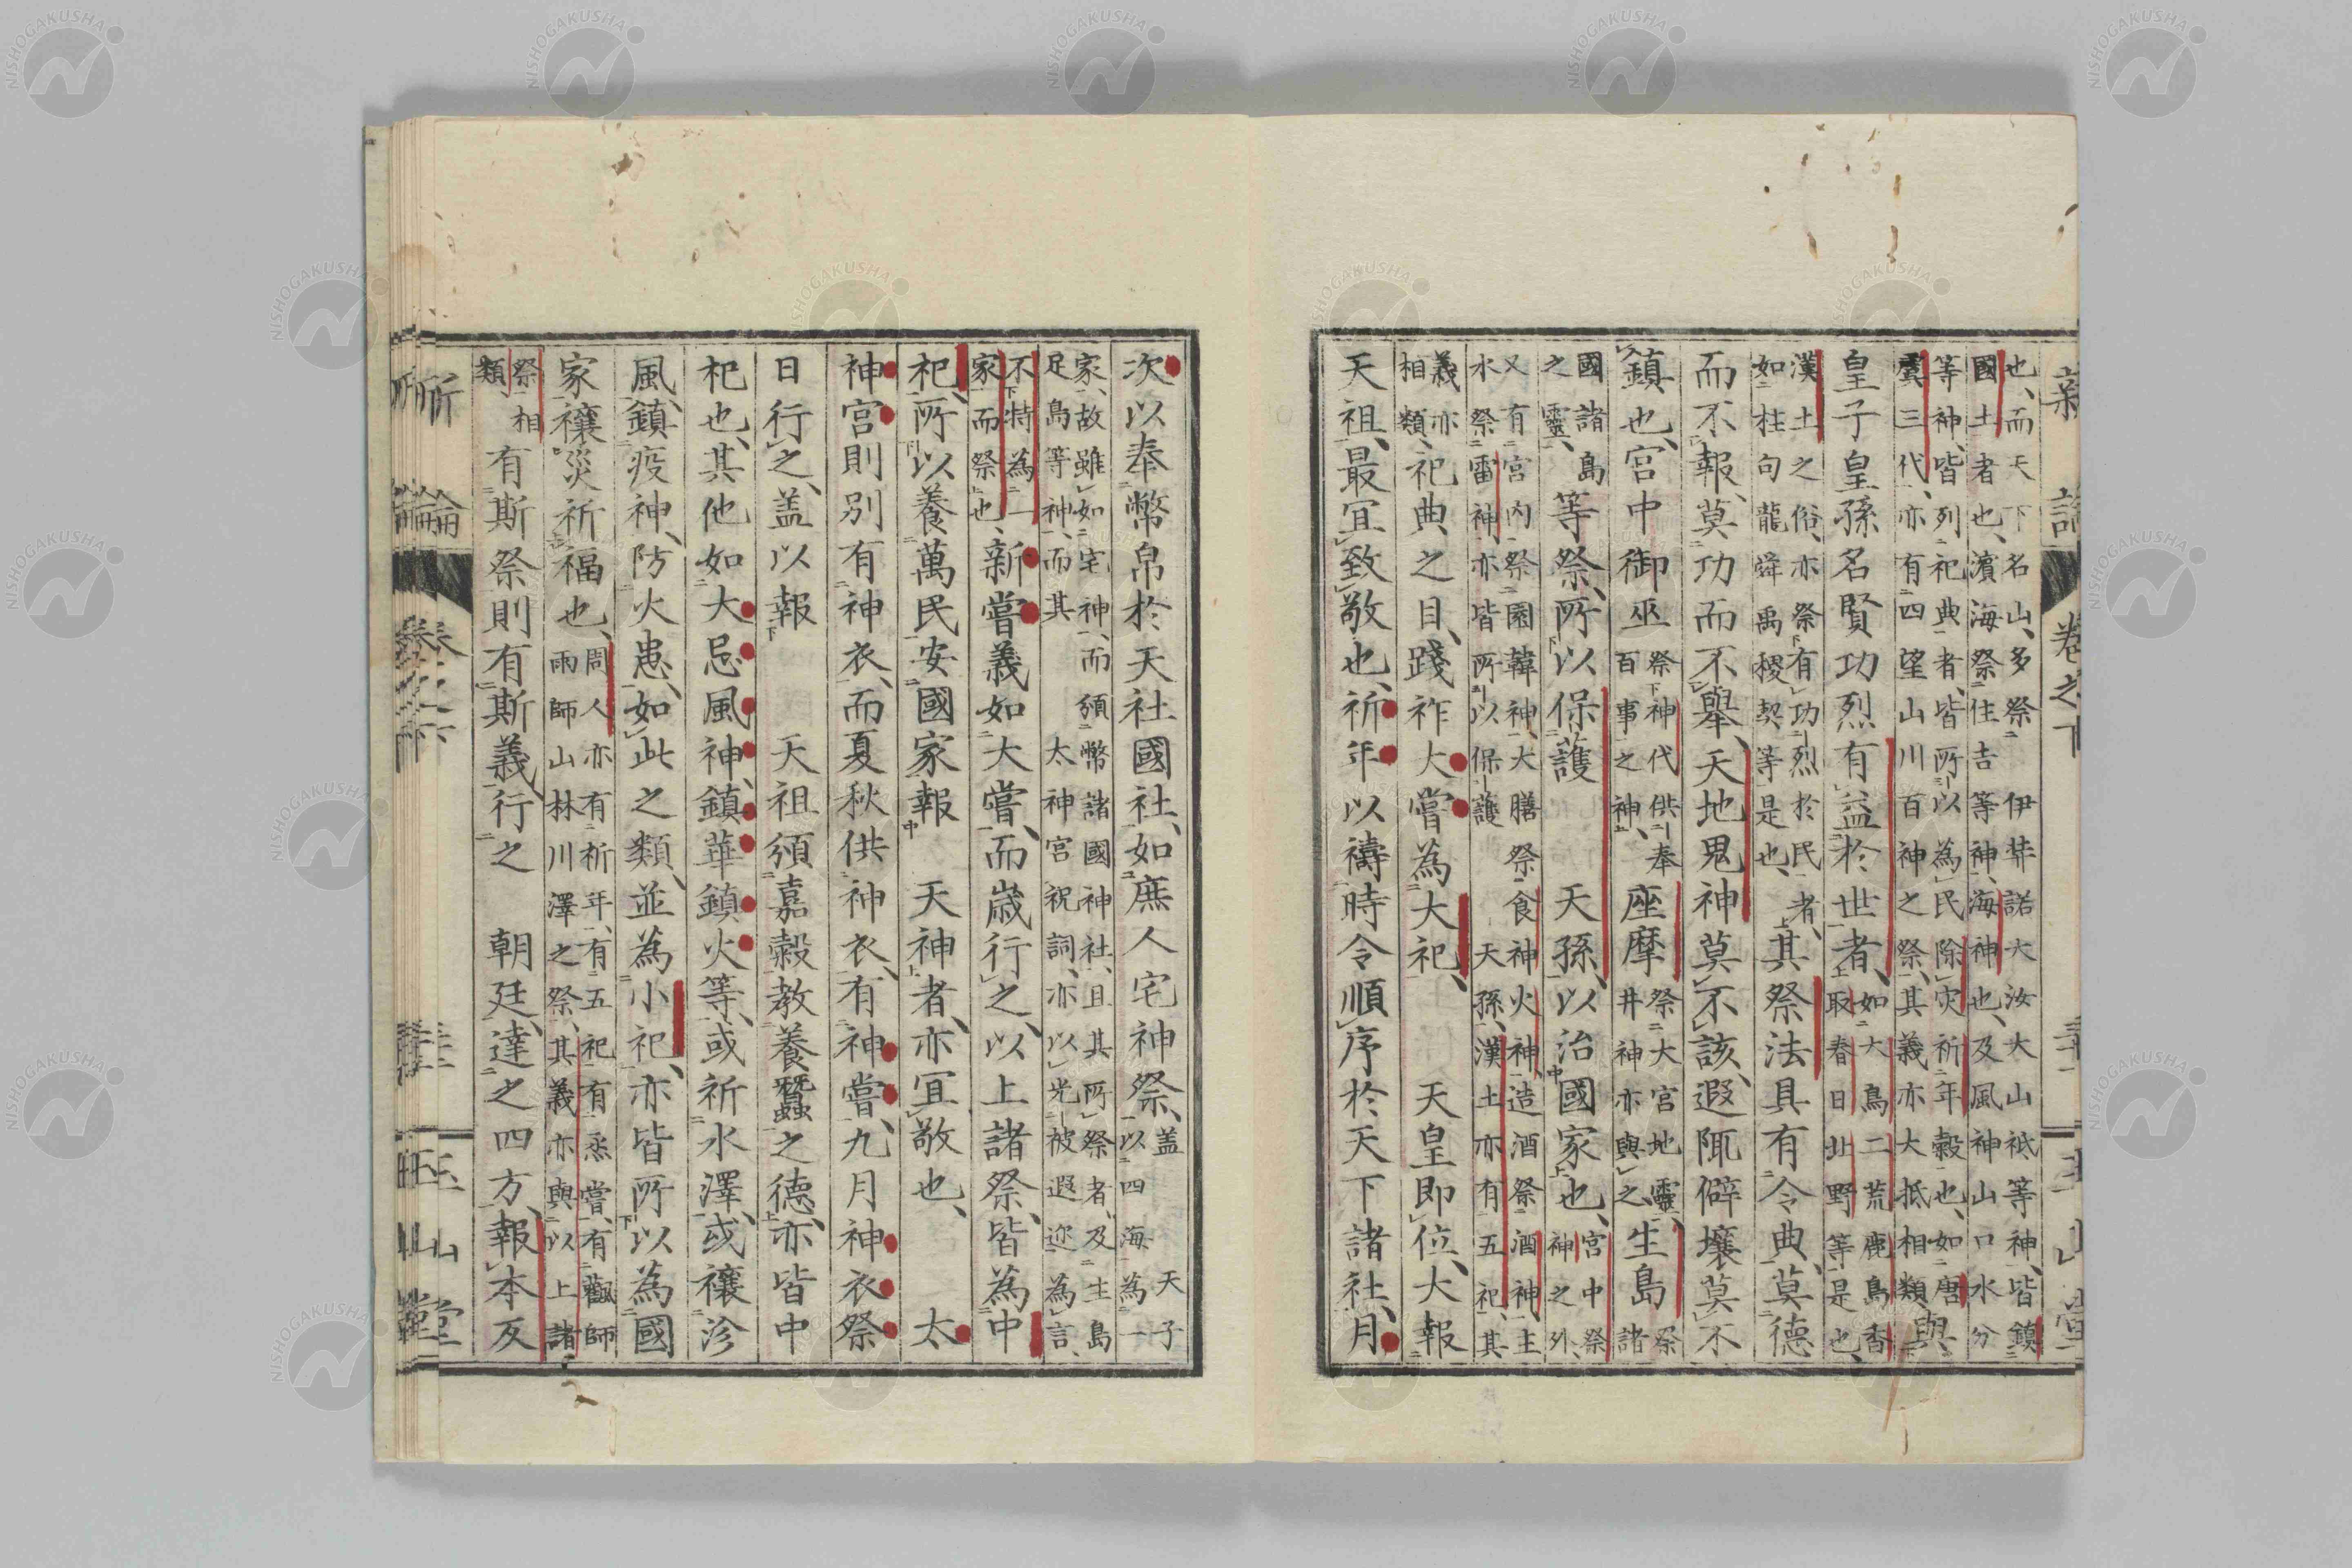 新論 卷之下 玉山堂
也、而天下名山、多祭伊弉諾大汝大山祇等神、皆鎮
國土者也、濱海祭住吉等神、海神也、及風神山口水分
等神、皆列祀典者、皆所以為民除灾祈年穀也、如唐與
虞三代、亦有四望山川百神之祭、其義亦大抵相類
皇子皇孫名賢功烈有益於世者、如大鳥二荒鹿島香
取春日北野等是也、
漢土之俗、亦祭有功烈於民者、
如柱句龍舜禹稷契等是也、其祭法具有令典、莫德
而不報、莫功而不舉、天地鬼神莫不該、遐陬僻壤莫不
鎮也、宮中御巫祭神代供奉
百事之神、座摩祭大宮地靈、
井神亦與之生島祭諸
國諸島
之靈、等祭、所以保護 天孫、以治國家也、宮中祭
神之外、
又有宮內祭園韓神、大膳祭食神火神造酒祭酒神、主
水祭雷神、亦皆所以保護 天孫、漢土亦有五祀、其
義亦
相類、祀典之目、踐祚大嘗為大祀、 天皇即位、大報
天祖、最宜致敬也、祈年以禱時令順序於天下諸社、月
次以奉幣帛於天社國社、如庶人宅神祭、盖 天子
以四海為一
家、故雖如宅神、而頒幣諸國神社、且其所祭者、及生島
足島等神、而其 太神宮祝詞、亦以光被遐迩為言、
不特為一
家而祭也、新嘗義如大嘗、而歲行之、以上諸祭、皆為中
祀、所以養萬民安國家報 天神者、亦宜敬也、 太
神宮則別有神衣、而夏秋供神衣、有神嘗、九月神衣祭
日行之、盖以報 天祖頒嘉穀教養蠶之德、亦皆中
祀也、其他如大忌風神、鎮華鎮火等、或祈水澤、或禳沴
風、鎮疫神、防火患、如此之類、並為小祀、亦皆所以為國
家禳災祈福也、周人亦有祈年、有五祀有烝嘗、有𩖗師
雨師山林川澤之祭、其義亦與以上諸
祭相
類 有斯祭則有斯義、行之 朝廷、達之四方、報本反
新論 卷之下 玉山堂